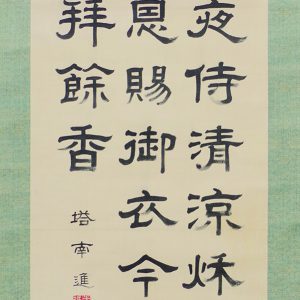 夜侍清涼秋
恩賜御衣今
拜餘香
塔南進